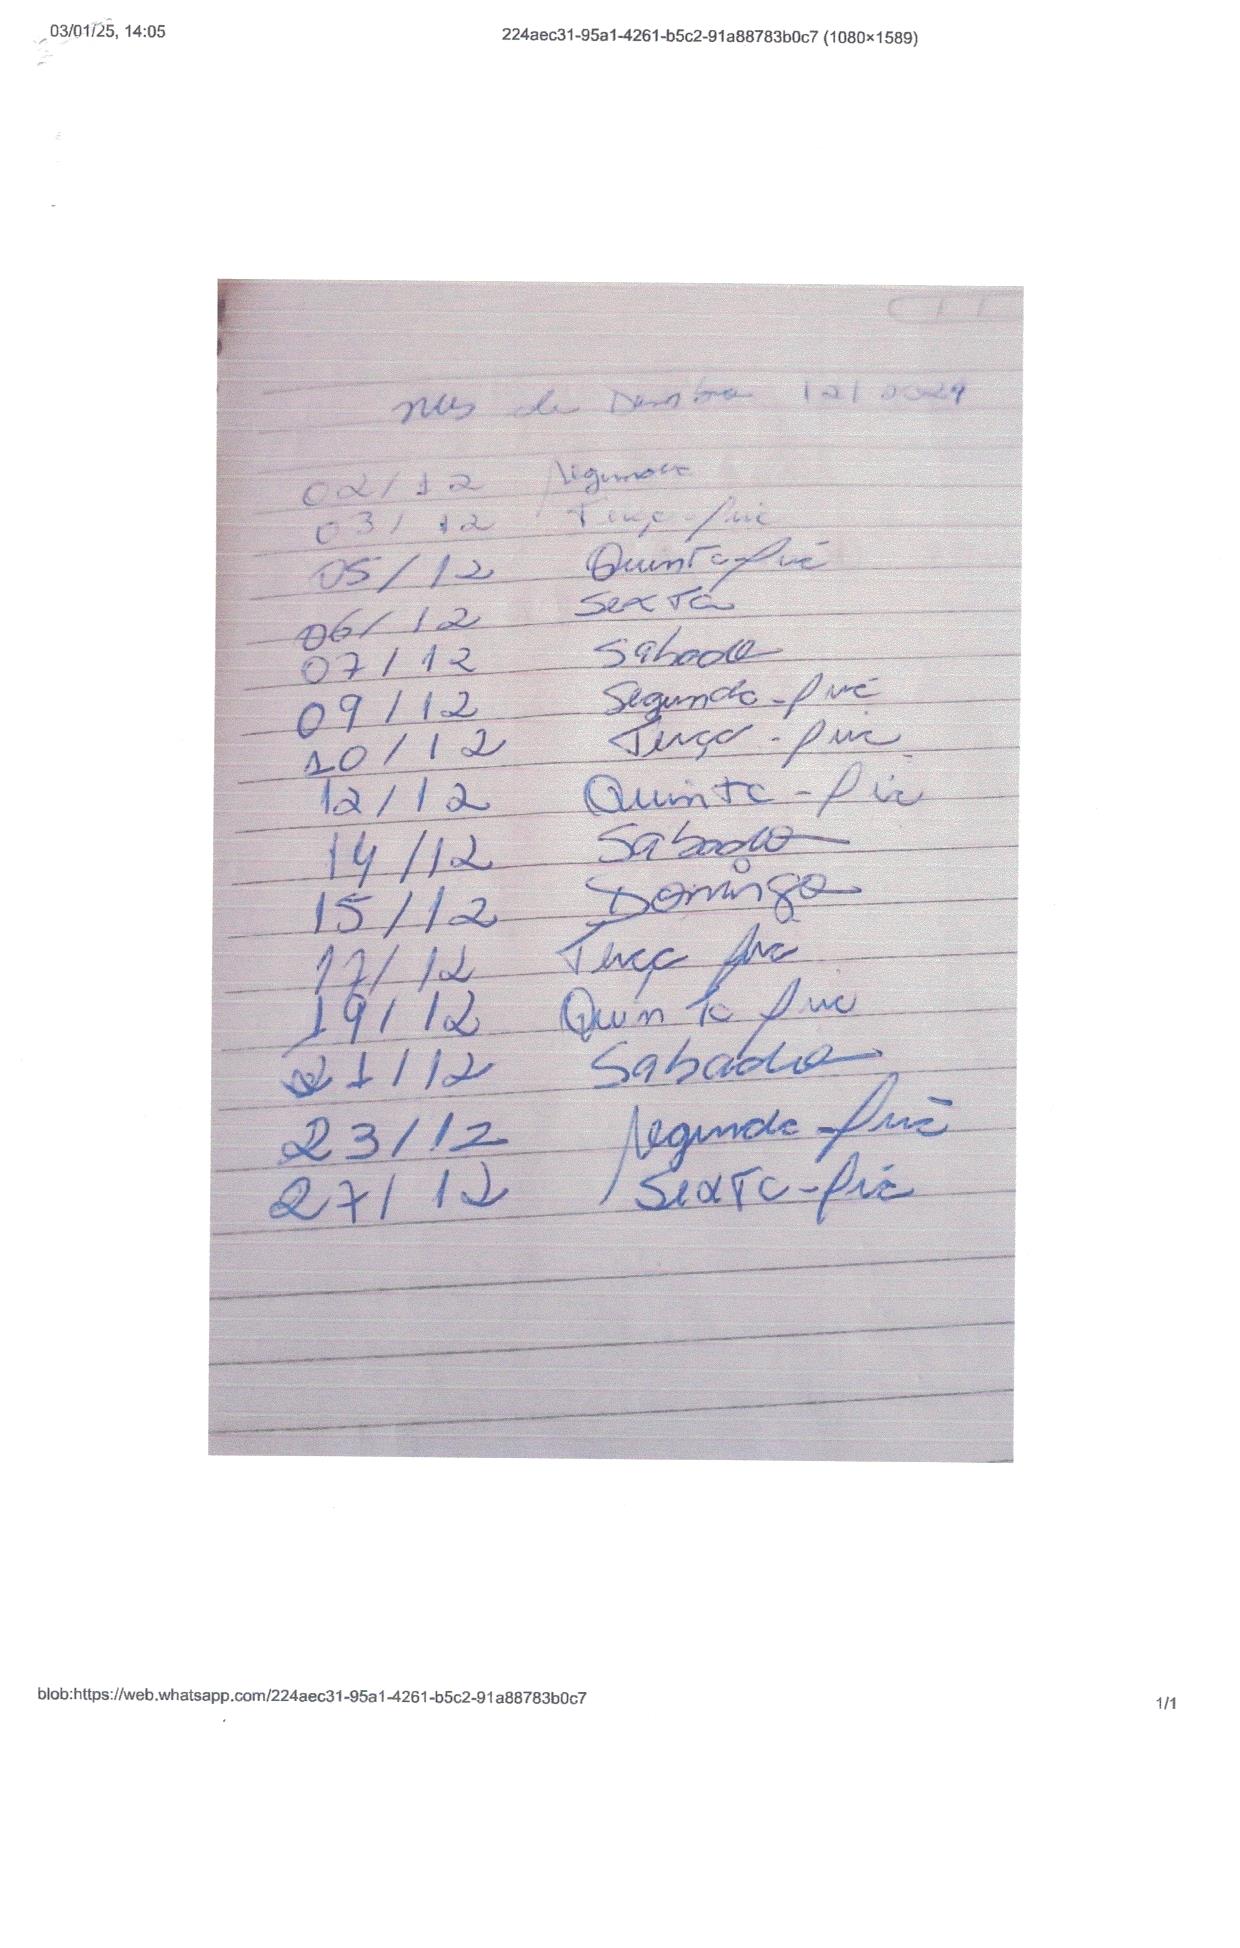 03/01/25, 14:05
224aec31-95a1-4261-b5c2-91a88783b0c7 (1080×1589)
mês de Dezembro 12/2024
02/12 Segunda
03/12 Terça-feira
05/12 Quinta-feira
06/12 Sexta
07/12 Sabado
09/12 Segunda-feira
10/12 Terça-feira
12/12 Quinta-feira
14/12 Sabado
15/12 Domingo
17/12 Terça feira
19/12 Quinta feira
21/12 Sabado
23/12 Segunda-feira
27/12 Sexta-feira
blob:https://web.whatsapp.com/224aec31-95a1-4261-b5c2-91a88783b0c7
1/1